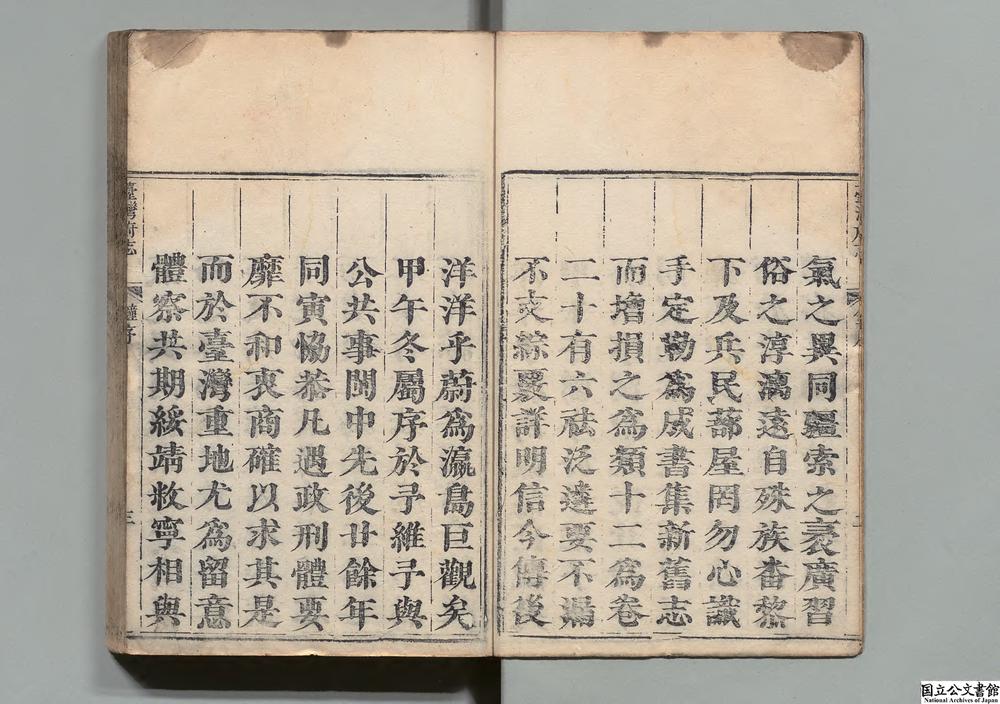 氣之異同疆索之袤廣習
俗之淳漓遠自殊族畨黎
下及兵民蔀屋罔勿心識
手定勒為成書集新舊志
而增損之為類十二為卷
二十有六袪泛遠要不漏
不支綜覈詳明信今傳後
洋洋乎蔚為瀛島巨觀矣
甲午冬屬序於予維予與
公共事閩中先後廿餘年
同寅恊恭凡遇政刑體要
靡不和衷商確以求其是
而於臺灣重地尤為留意
體察共期綏靖敉寧相與
臺灣府志
鍾序
三
国立公文書館
National Archives of Japan